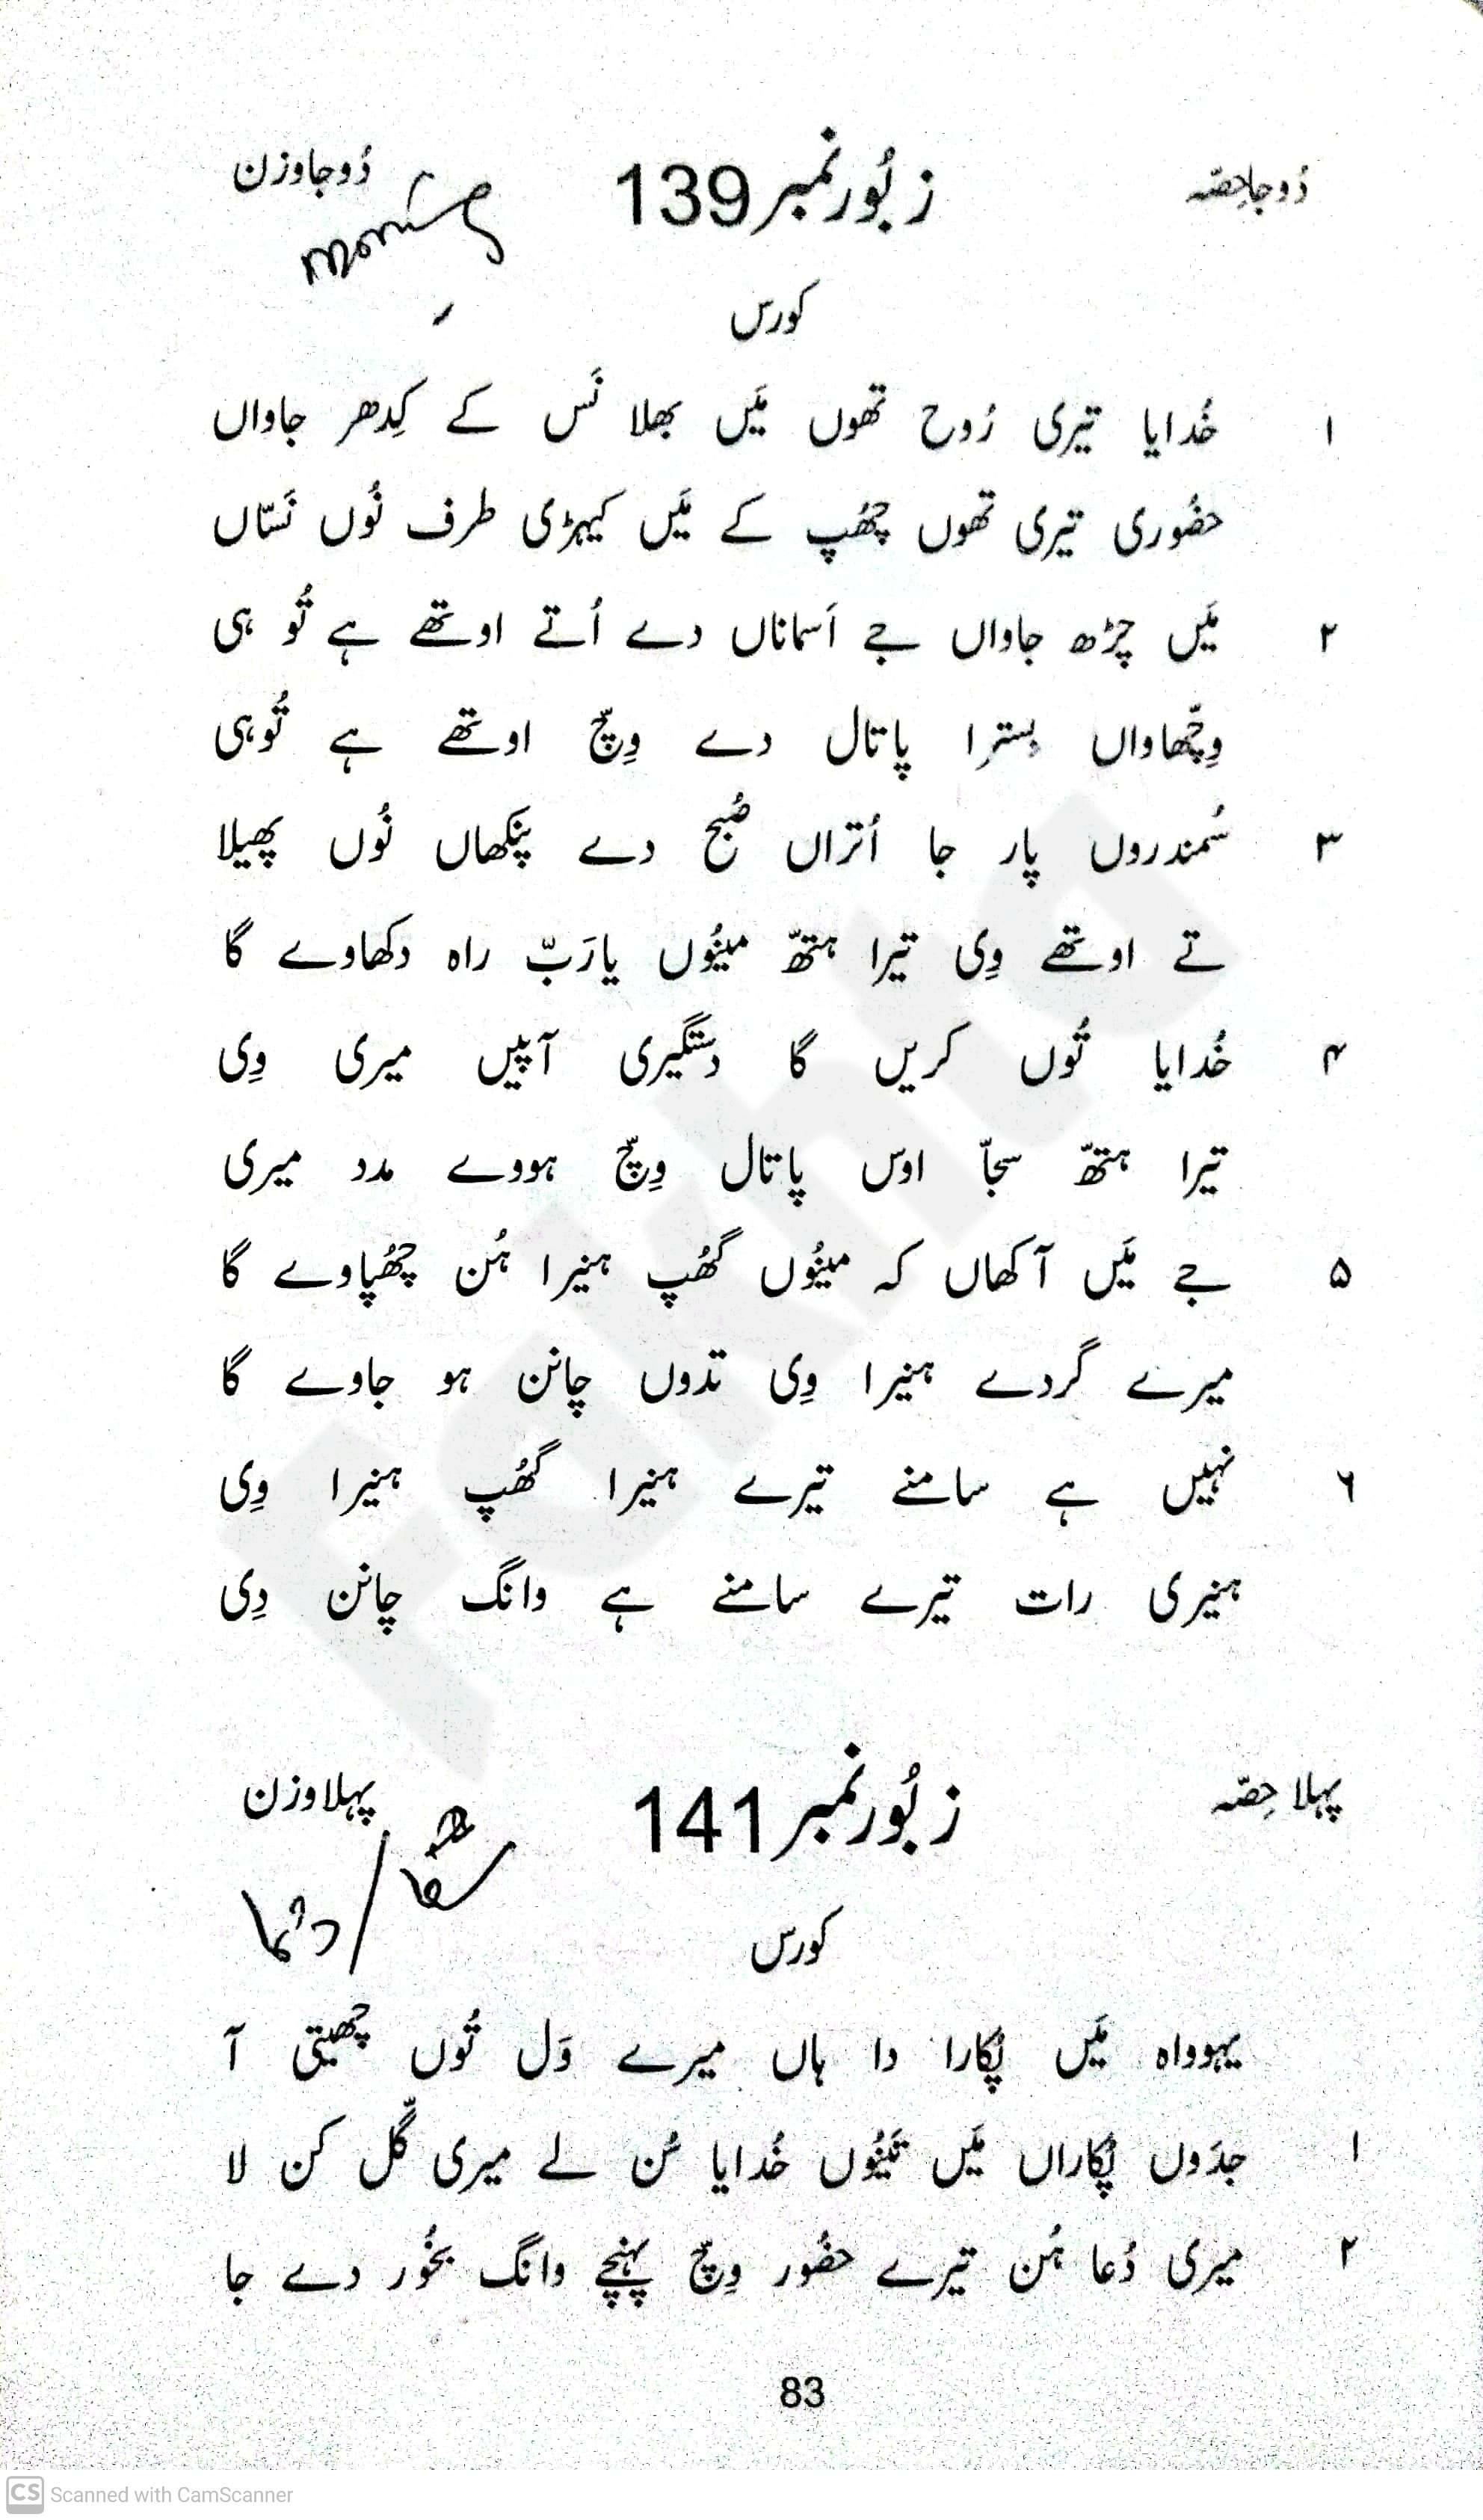 دُوجا حِصّہ زبُور نمبر 139 دُوجا وزن
کورس
۱ خُدایا تیری رُوح تھوں مَیں بھلا نَس کے کِدھر جاواں
حضُوری تیری تھوں چھُپ کے مَیں کیہڑی طرف نُوں نَسّاں
۲ مَیں چڑھ جاواں جے اَسماناں دے اُتے اوتھے ہے تُو ہی
وِچّھاواں بسترا پاتال دے وِچّ اوتھے ہے تُوہی
۳ سُمندروں پار جا اُتراں صُبح دے پنکھاں نُوں پھیلا
تے اوتھے وِی تیرا ہتھّ مینُوں یارَبّ راہ دکھاوے گا
۴ خُدایا تُوں کریں گا دستگیری آپیں میری وِی
تیرا ہتھّ سجاّ اوس پاتال وِچّ ہووے مدد میری
۵ جے مَیں آکھاں کہ مینُوں گھُپ ہنیرا ہُن چھُپاوے گا
میرے گردے ہنیرا وِی تدوں چانن ہو جاوے گا
۶ نہیں ہے سامنے تیرے ہنیرا گھُپ ہنیرا وِی
ہنیری رات تیرے سامنے ہے وانگ چانن دِی
پہلا حِصّہ زبُور نمبر 141 پہلا وزن
کورس
یہوواہ مَیں پُکارا دا ہاں میرے وَل تُوں چھیتی آ
۱ جدَوں پُکاراں مَیں تَینُوں خُدایا سُن لے میری گَلّ کن لا
۲ میری دُعا ہُن تیرے حضُور وِچّ پہنچے وانگ بخُور دے جا
83
CS Scanned with CamScanner